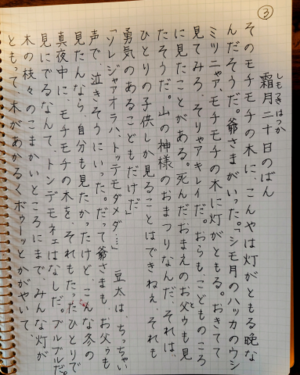 ③
しもつきはつか
霜月二十日のばん
そのモチモチの木に、こんやは灯がともる晩な
んだそうだ。爺さまがいった。「シモ月のハツカのウシ
ミツにゃァ、モチモチの木に灯がともる。おきてて
見てみろ。そりゃァキレイだ。おらも、こどものころ
に見たことがある。死んだおまえのお父ゥも見
たそうだ。山の神様のおまつりなんだ、それは
ひとりの子供しか見ることはできねえ、それも
勇気のあるこどもだけだ」
「ソレジャァオラハ、トッテモダメダ…」豆太は、ちっちゃい
声で、泣きそうにいった。だって爺さまも、お父ゥも
見たんなら、自分も見たかったけど、こんな冬の
真夜中に、モチモチの木を、それもたったひとりで
見にでるなんて、トンデモネェはなしだ。ブルブルだ。
木の枝々のこまかいところにまで、みんな灯が
ともって、木があかるくボゥーッとかがやいて、